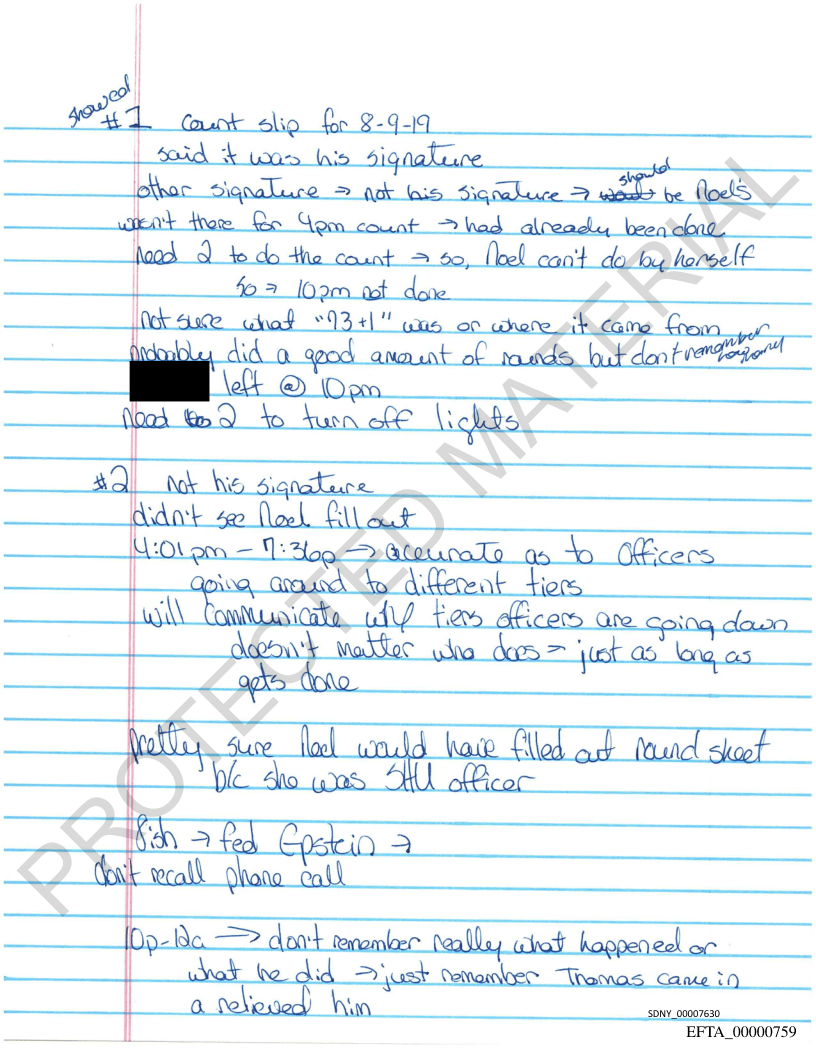 showed
#1 Count slip for 8-9-19
said it was his signature
other signature → not his signature → would should be Noel's
wasn't there for 4pm count → had already been done
need 2 to do the count → so, Noel can't do by herself
so → 10pm not done
not sure what "73+1" was or where it came from
probably did a good amount of rounds but don't remember
left @ 10pm
need 2 to turn off lights
#2 not his signature
didn't see Noel fill out
4:01pm - 7:36p → accurate as to Officers
going around to different tiers
will communicate w/ tiers officers are going down
doesn't matter who does = just as long as
gets done
pretty sure Noel would have filled out round sheet
b/c she was SHU officer
fish → fed Epstein →
don't recall phone call
10p-12a → don't remember really what happened or
what he did → just remember Thomas came in
a relieved him
PROTECTED MATERIAL
SDNY_00007630
EFTA_00000759